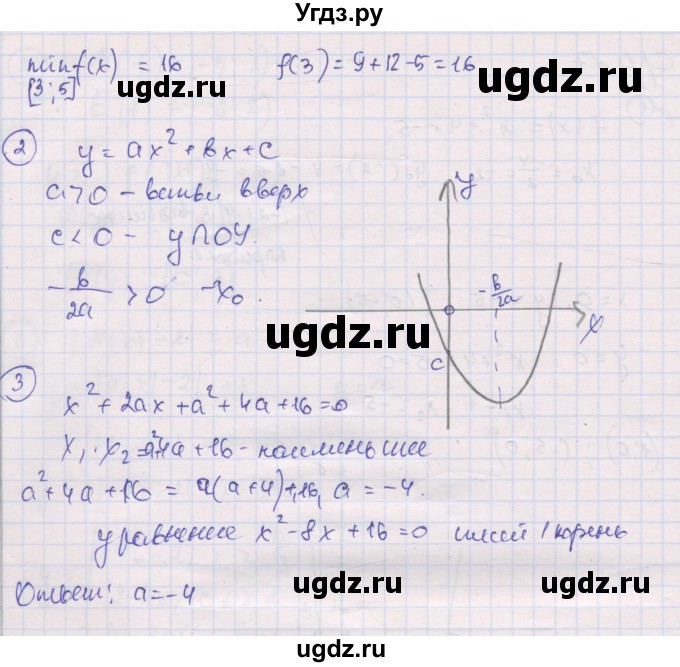 Угдз.ру
min f(x) = 16 f(3) = 9 + 12 - 5 = 16
[3; 5]
ugdz.ru ugdz.ru
2 y = ax² + вx + c
a > 0 - ветви вверх
c < 0 - y ∩ OY.
- в/2a > 0 - x₀.
y
- в/2a
x
c
ugdz.ru ugdz.ru
3
x² + 2ax + a² + 4a + 16 = 0
x₁ · x₂ = a² + 4a + 16 - наименьшее
ugdz.ru
a² + 4a + 16 = a(a + 4) + 16, a = -4.
ugdz.ru
уравнение x² - 8x + 16 = 0 имеет 1 корень
Ответ: a = -4
ugdz.ru ugdz.ru
ugdz.ru